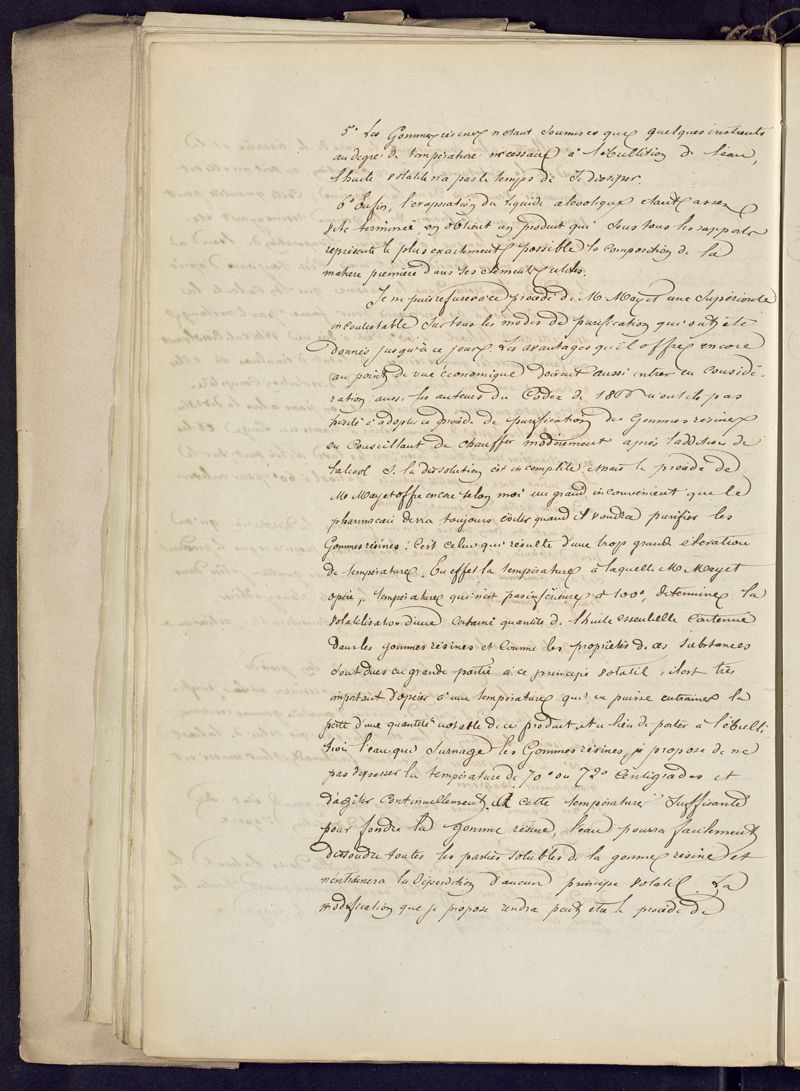 5° Les Gommes résines n'étant soumises que quelques instants
au degré de température nécessaire à l'ébullition de l'eau,
l'huile volatile n'a pas le temps de se dissiper.
6° Enfin, l'évaporation du liquide alcoolique étant assez
vite terminée on obtient un produit qui sous tous les rapports
représente le plus exactement possible la composition de la
matière première dans ses éléments utiles.
Je ne puis refuser à ce procédé de Mr Mayet une supériorité
incontestable sur tous les modes de purification qui ont été
donnés jusqu'à ce jour. Les avantages qu'il offre encore
au point de vue économique doivent aussi entrer en considé-
ration aussi les auteurs du Codex de 1866 n'ont ils pas
hésité d'adopter ce procédé de purification des Gommes résines
en conseillant de chauffer modérément après l'addition de
l'alcool si la dissolution est incomplète, mais le procédé de
Mr Mayet offre encore selon moi un grand inconvénient que le
pharmacien devra toujours éviter quand il voudra purifier les
Gommes résines: c'est celui qui résulte d'une trop grande élévation
de température. En effet la température à laquelle Mr Mayet
opère, température qui n'est pas inférieure à 100°, détermine la
volatilisation d'une certaine quantité de l'huile essentielle contenue
dans les gommes résines et comme les propriétés de ces substances
sont dues en grande partie à ce principe volatil, il est très
important d'opérer à une température qui ne puisse entrainer la
perte d'une quantité notable de ce produit. Au lieu de porter à l'ébulli-
tion l'eau qui surnage les Gommes résines, je propose de ne
pas dépasser la température de 70° ou 72° Centigrades et
d'agiter continuellement. A cette température suffisante
pour fondre la gomme résine, l'eau pourra facilement
dissoudre toutes les parties solubles de la gomme résine et
n'entrainera la déperdition d'aucun principe volatil. La
modification que je propose rendra peut être le procédé de